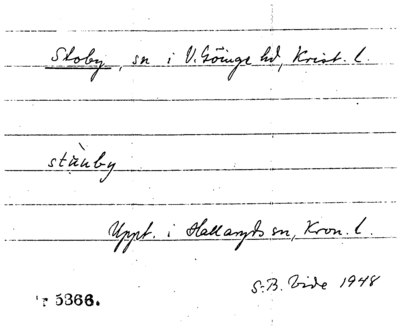 Stoby, sn i V. Göinge hd, Krist. l.
stàuby
Uppt. i Hallaryds sn, Kron. l.
S. B. Vide 1948
r 5366.